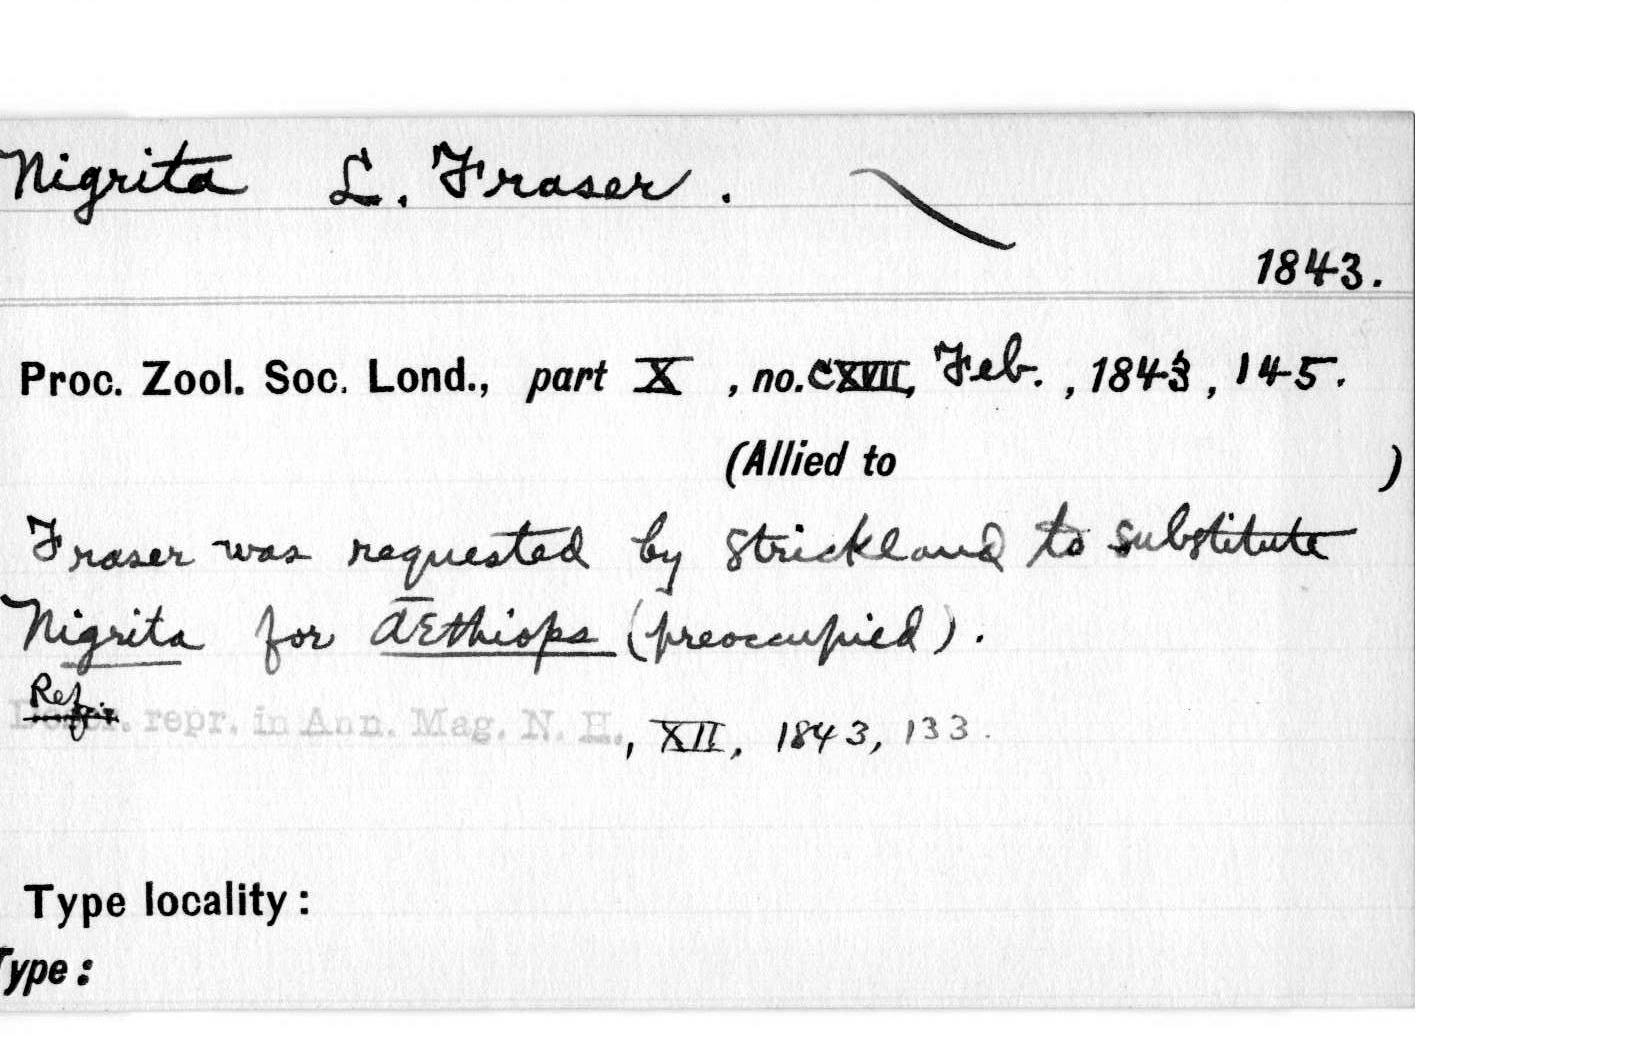 Nigrita L. Fraser.
1843.
Proc. Zool. Soc. Lond., part X, no. CXVII, Feb., 1843, 145.
(Allied to )
Fraser was requested by Strickland to substitute
Nigrita for Æthiops (preoccupied).
Ref.
repr. in Ann. Mag. N. H., XII, 1843, 133.
Type locality:
Type: